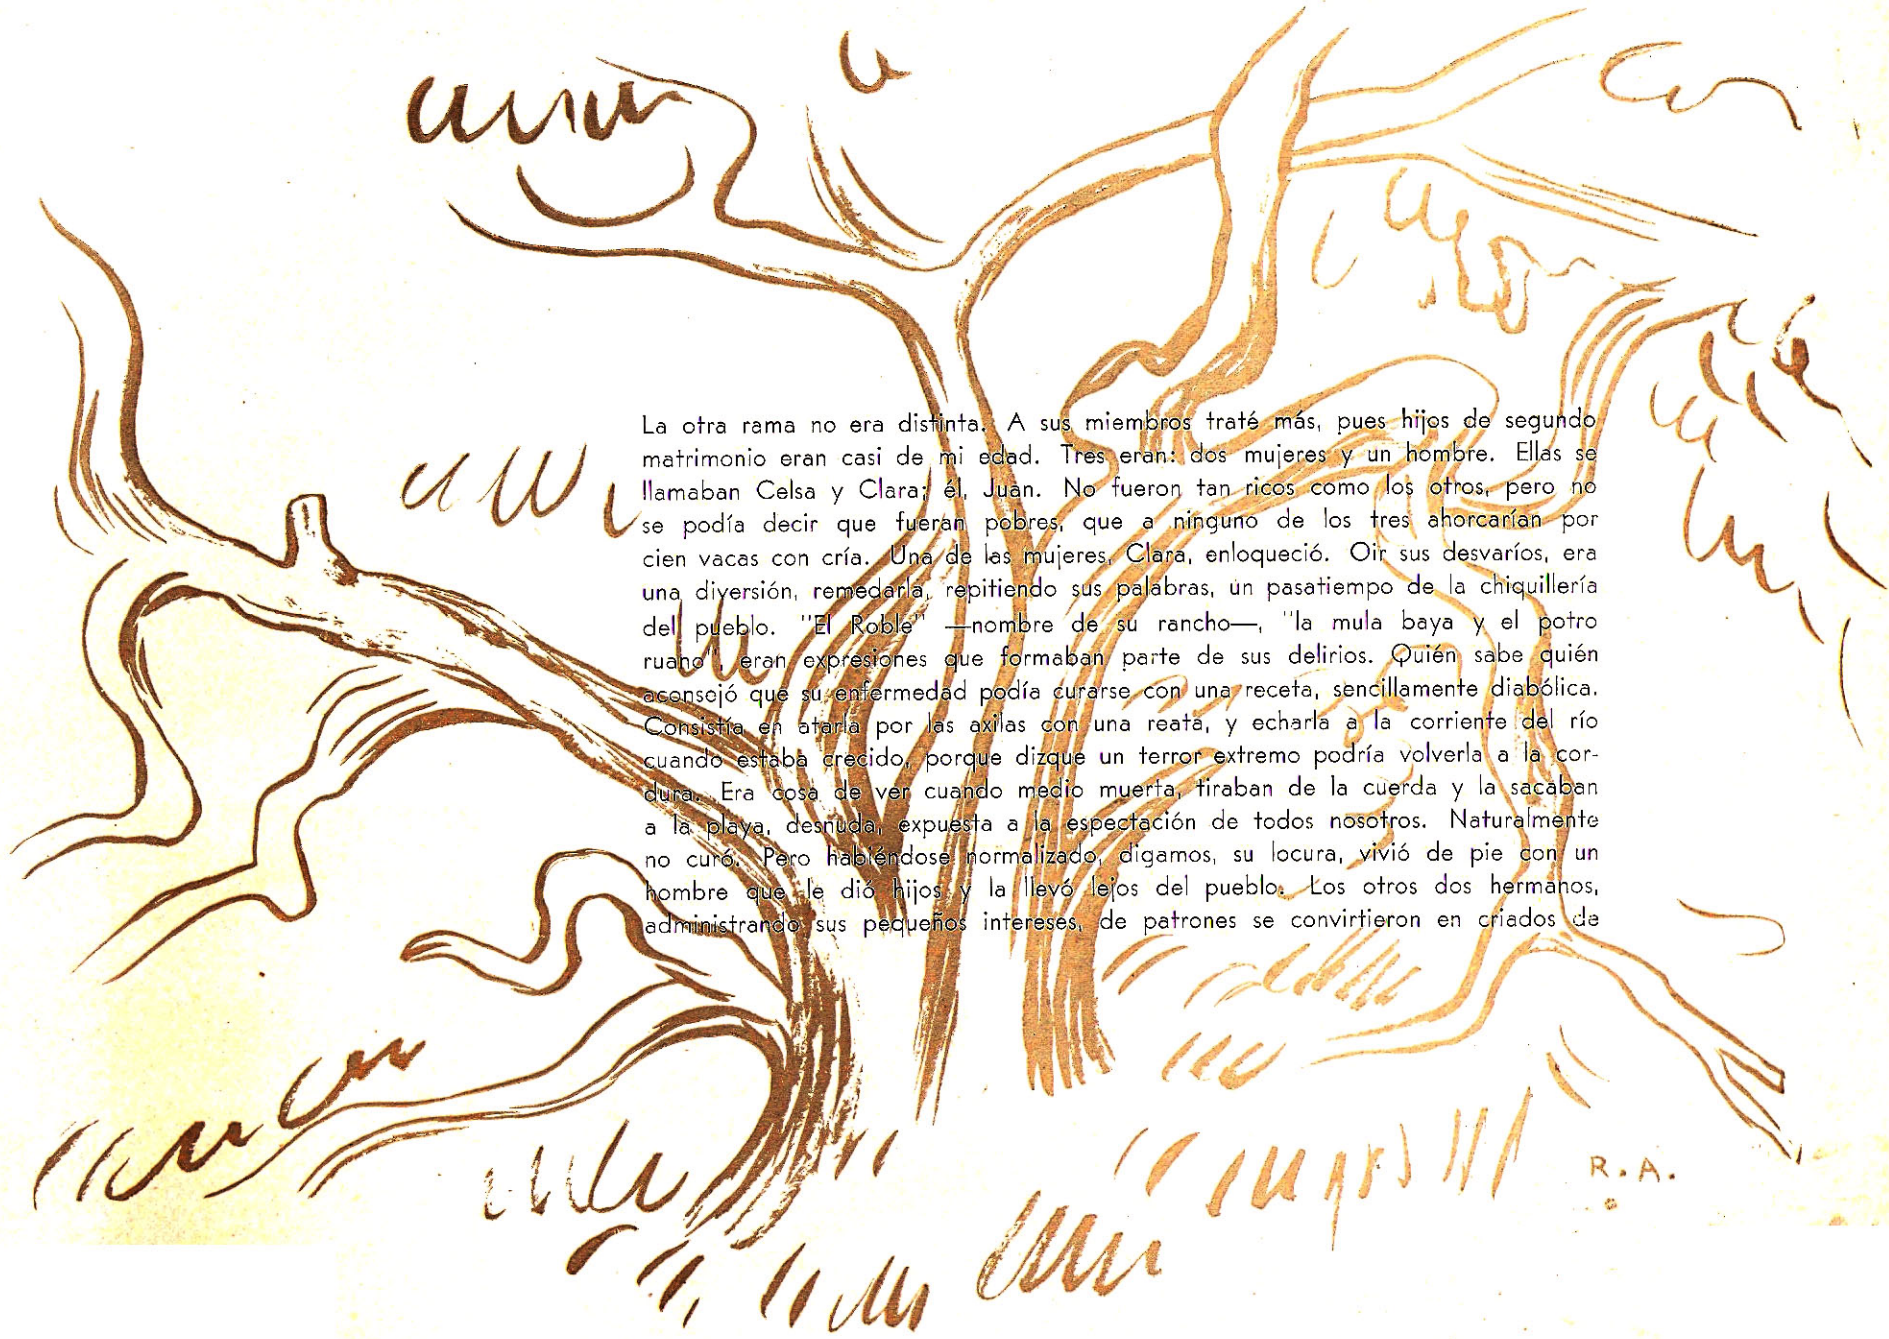 La otra rama no era distinta. A sus miembros traté más, pues hijos de segundo
matrimonio eran casi de mi edad. Tres eran: dos mujeres y un hombre. Ellas se
llamaban Celsa y Clara; él, Juan. No fueron tan ricos como los otros, pero no
se podía decir que fueran pobres, que a ninguno de los tres ahorcarían por
cien vacas con cría. Una de las mujeres, Clara, enloqueció. Oir sus desvaríos, era
una diversión, remedarla, repitiendo sus palabras, un pasatiempo de la chiquillería
del pueblo. "El Roble" —nombre de su rancho—, "la mula baya y el potro
ruano", eran expresiones que formaban parte de sus delirios. Quién sabe quién
aconsejó que su enfermedad podía curarse con una receta, sencillamente diabólica.
Consistía en atarla por las axilas con una reata, y echarla a la corriente del río
cuando estaba crecido, porque dizque un terror extremo podría volverla a la cor-
dura. Era cosa de ver cuando medio muerta, tiraban de la cuerda y la sacaban
a la playa, desnuda, expuesta a la espectación de todos nosotros. Naturalmente
no curó. Pero habiéndose normalizado, digamos, su locura, vivió de pie con un
hombre que le dió hijos y la llevó lejos del pueblo. Los otros dos hermanos,
administrando sus pequeños intereses, de patrones se convirtieron en criados de
R. A.